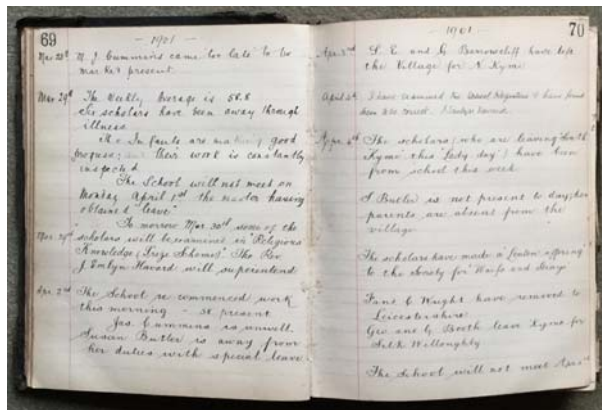 69
- 1901 -
Mar 28th M. J. Cummins came too late to be
marked present.
Mar 29th The Weekly Average is 58.8
Six scholars have been away through
illness.
The Infants are making good
progress; and their work is constantly
inspected
The School will not meet on
Monday April 1st the master having
obtained "leave"
To morrow Mar. 30th some of the
Mar. 29th scholars will be examined in "Religious
Knowledge (Prize Scheme)" The Rev.
J. Emlyn Havard will superintend
Apr. 2nd The School re commenced work
this morning - 58 present
Jas. Cummins is unwell.
Susan Butler is away from
her duties with special leave
- 1901 -
70
Apr. 3rd S. E. and G. Barrowcliff have left
the Village for N. Kyme
April 4th I have examined the School Registers & have found
them to be correct. J. Emlyn Havard.
Apr. 4th The scholars (who are leaving South
Kyme this Lady day) have been
from school this week
S Butler is not present to day; her
parents are absent from the
village
The scholars have made a "Lenten offering"
to the Society for Waifs and Strays
Fans & Wright have removed to
Leicestershire
Geo and G Booth leave Kyme for
Silk Willoughby
The School will not meet Apr